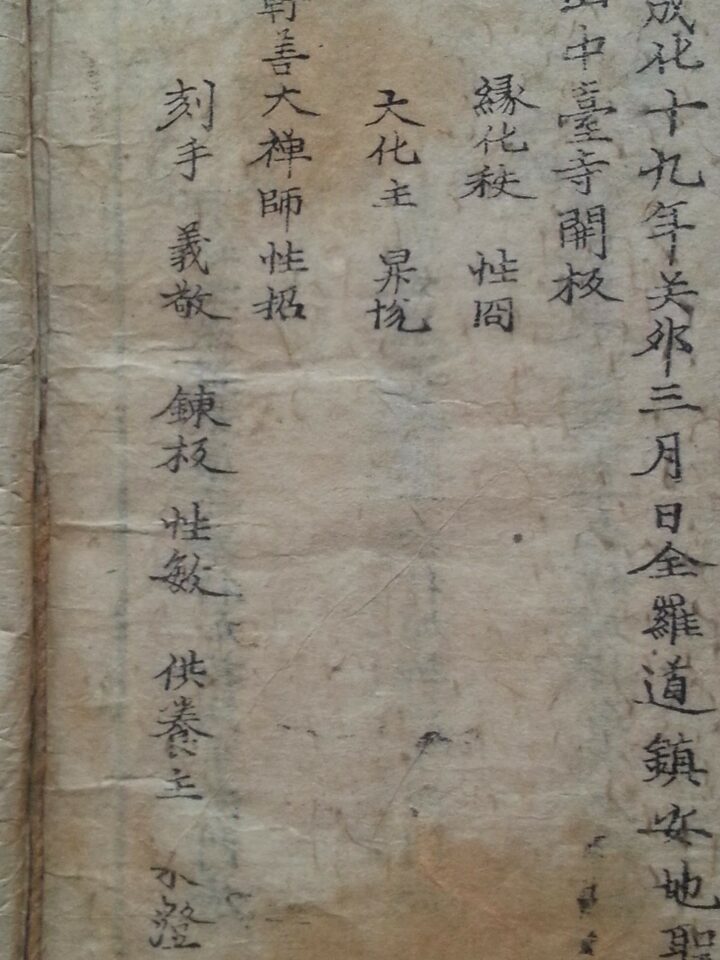 成化十九年癸卯三月日全羅道鎮安地聖
山中臺寺開板
緣化秩 性冏
大化主 昇悅
幹善大禅師性招
刻手 義敬 鍊板 性敏 供養主 水澄